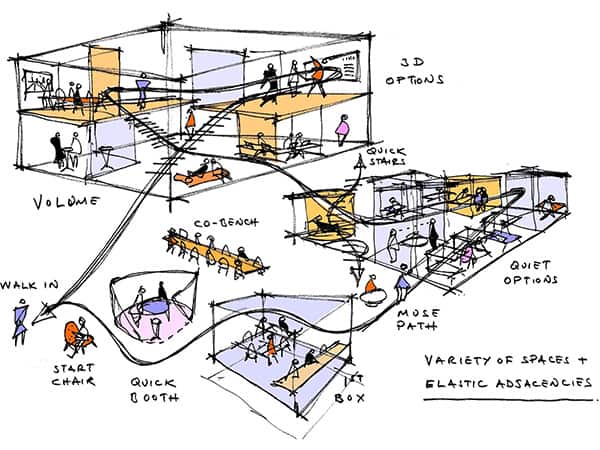 3D
OPTIONS
QUICK
STAIRS
VOLUME
CO-BENCH
WALK IN
QUIET
OPTIONS
MUSE
PATH
START
CHAIR
QUICK
BOOTH
BOX
VARIETY OF SPACES +
ELASTIC ADJACENCIES